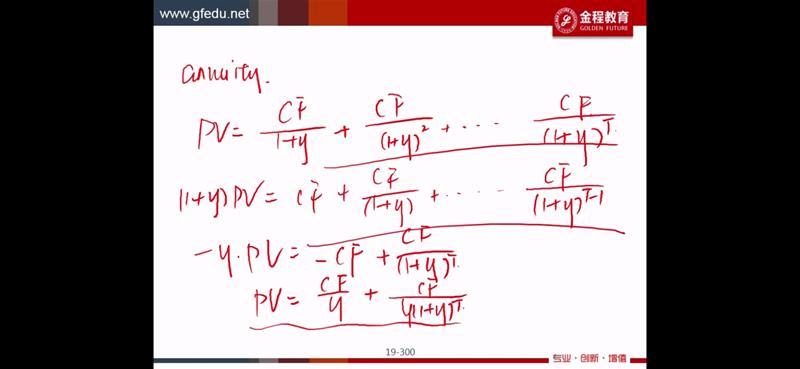 www.gfedu.net
金程教育
GOLDEN FUTURE
annuity.
PV = CF/(1+y) + CF/(1+y)² + ··· CF/(1+y)^T.
(1+y)PV = CF + CF/(1+y) + ···· CF/(1+y)^T-1
-y·PV = -CF + CF/(1+y)^T.
PV = CF/y + CF/y(1+y)^T.
19-300
专业·创新·增值